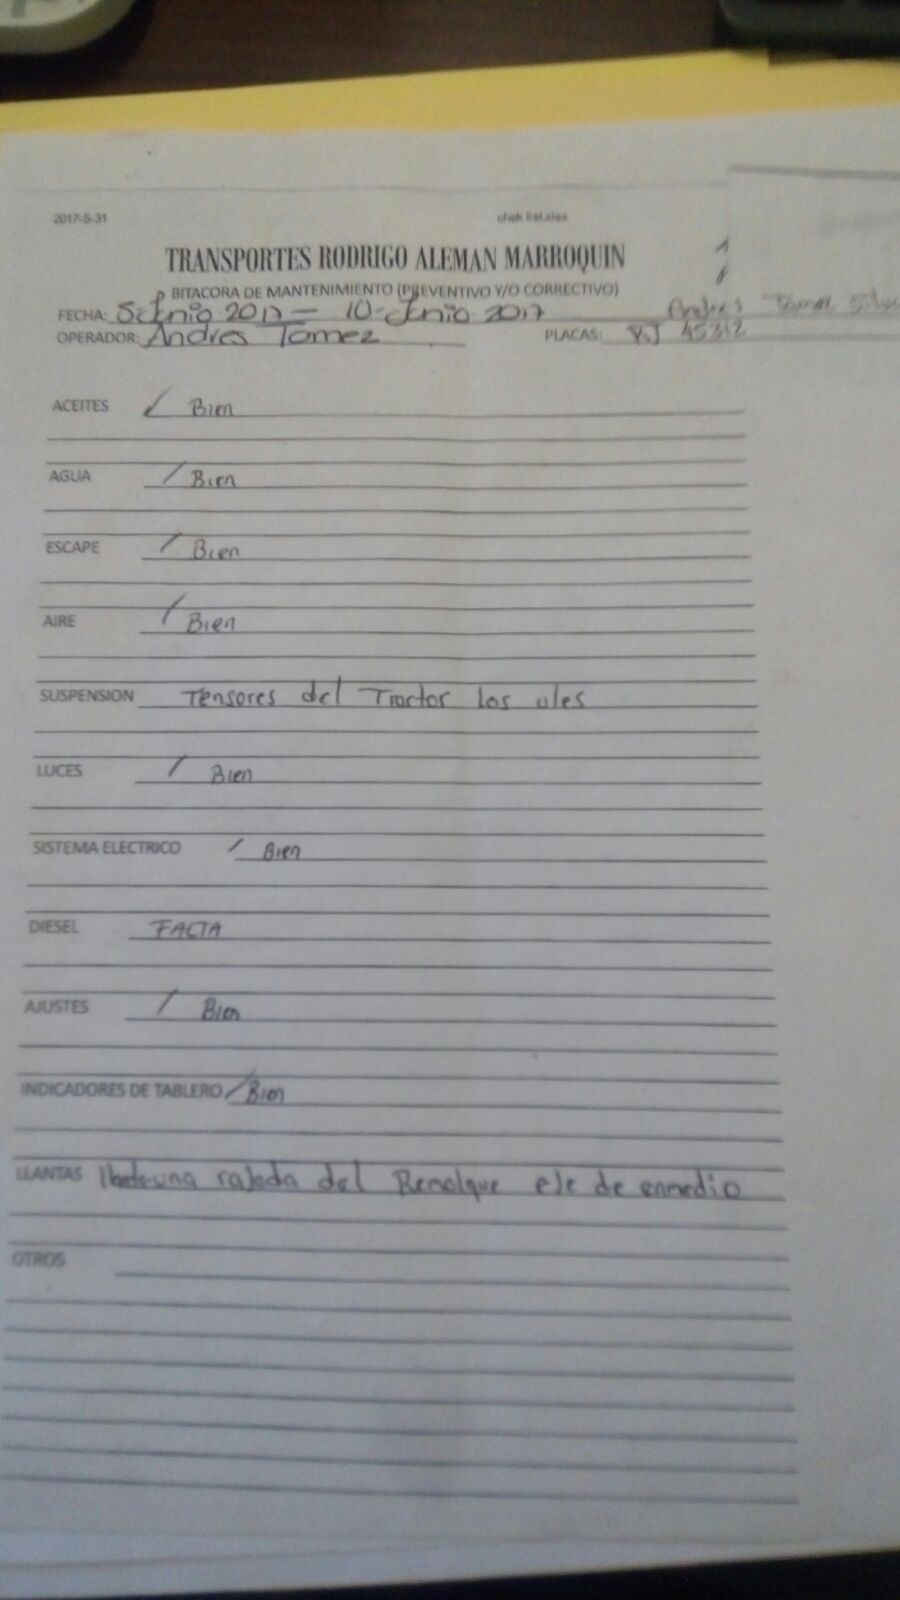 2017-5-31 chek list.xlsx
TRANSPORTES RODRIGO ALEMAN MARROQUIN
BITACORA DE MANTENIMIENTO (PREVENTIVO Y/O CORRECTIVO)
FECHA: 2017 — 10-Junio 2017 Andres Tomez
OPERADOR: Andres Tomez PLACAS: 45312
ACEITES ✓ Bien
AGUA / Bien
ESCAPE / Bien
AIRE / Bien
SUSPENSION Tensores del Tractor las ules
LUCES / Bien
SISTEMA ELECTRICO / Bien
DIESEL FACTA
AJUSTES / Bien
INDICADORES DE TABLERO / Bien
LLANTAS una rajada del Remolque eje de enmedio
OTROS